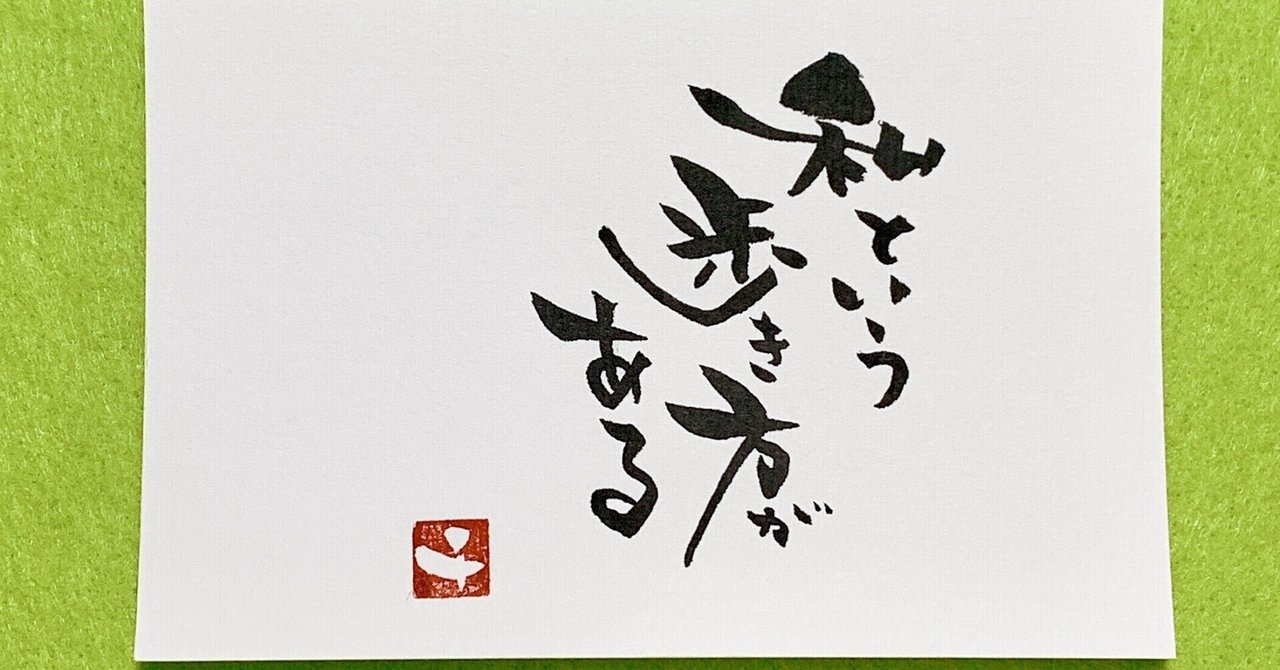 私という
歩き方が
ある